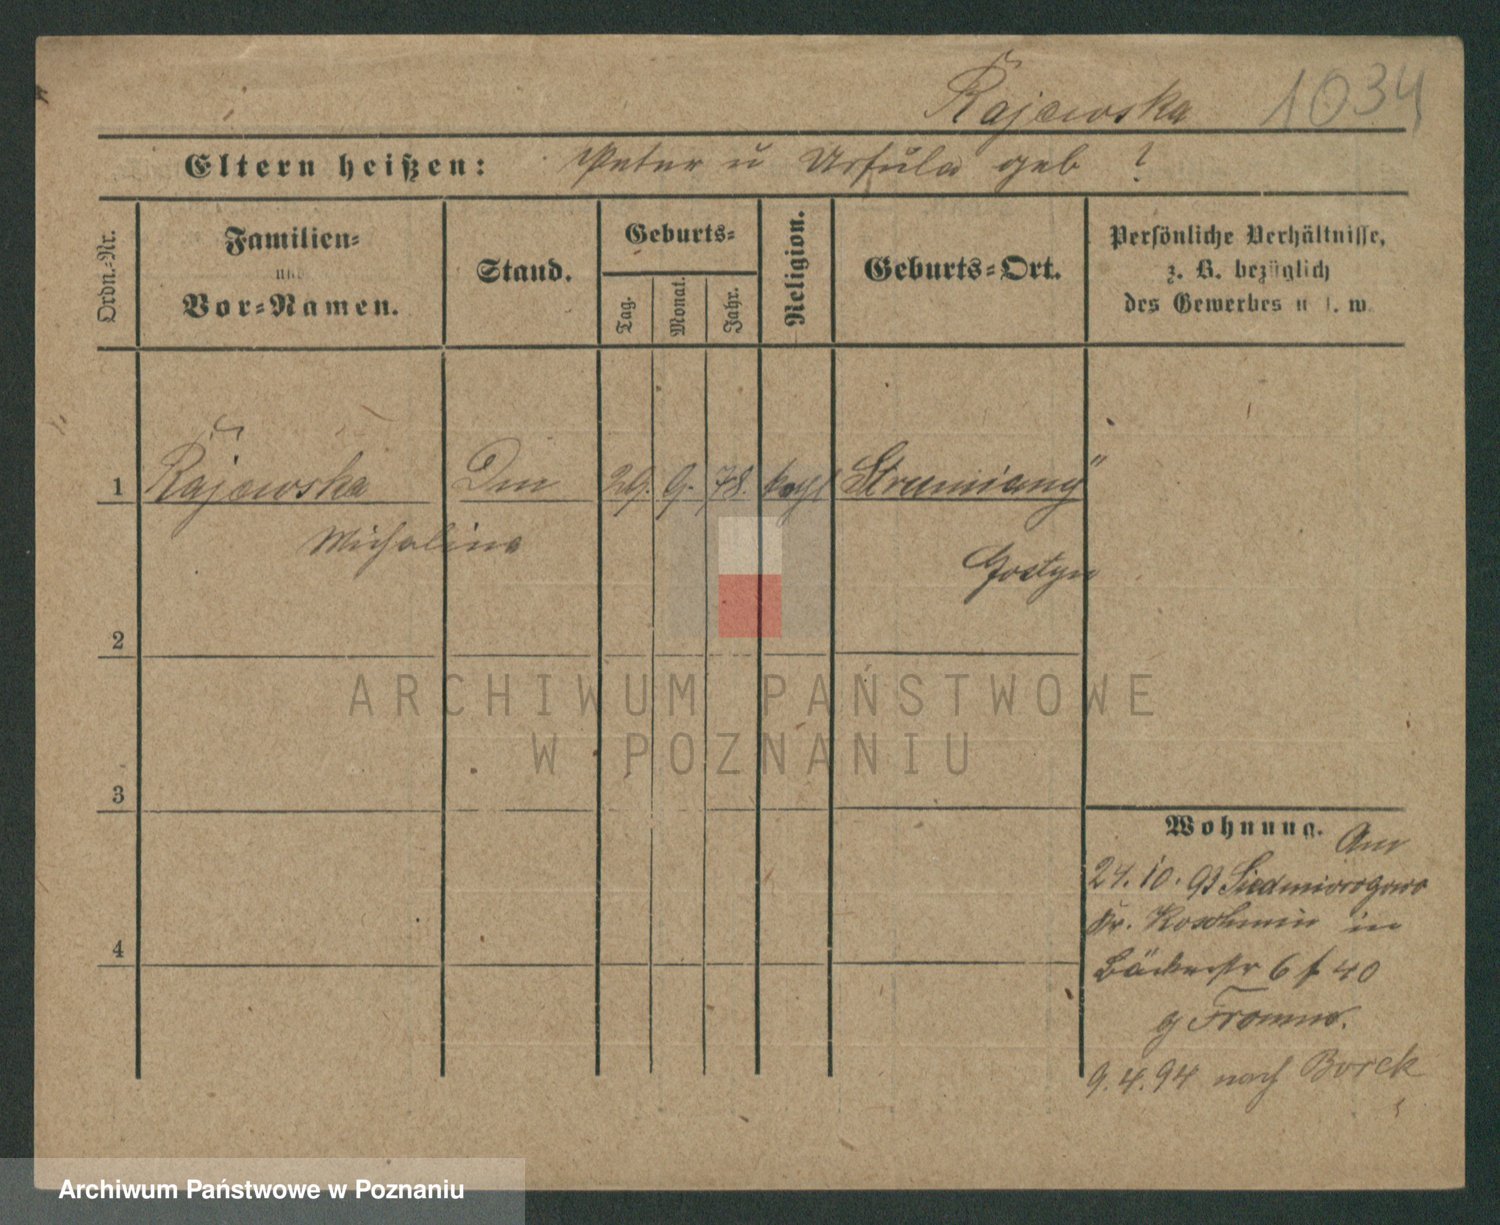 Rajewska 1034
Eltern heißen: Peter u Ursula geb ?
Ordn.-Nr.
Familien-
und
Vor-Namen.
Stand.
Geburts-
Tag.
Monat.
Jahr.
Religion.
Geburts-Ort.
Persönliche Verhältnisse,
z. B. bezüglich
des Gewerbes u. s. w.
1 Rajewska 29. 9. 78. kath Strumiany
Michalina
Gostyn
2
3
4
Wohnung. Am
24. 10. 93 Siedmiorogowo
Kr. Koschmin in
Bäckerstr 6 40
9. 4. 94 nach Borek
ARCHIWUM PAŃSTWOWE
W POZNANIU
Archiwum Państwowe w Poznaniu